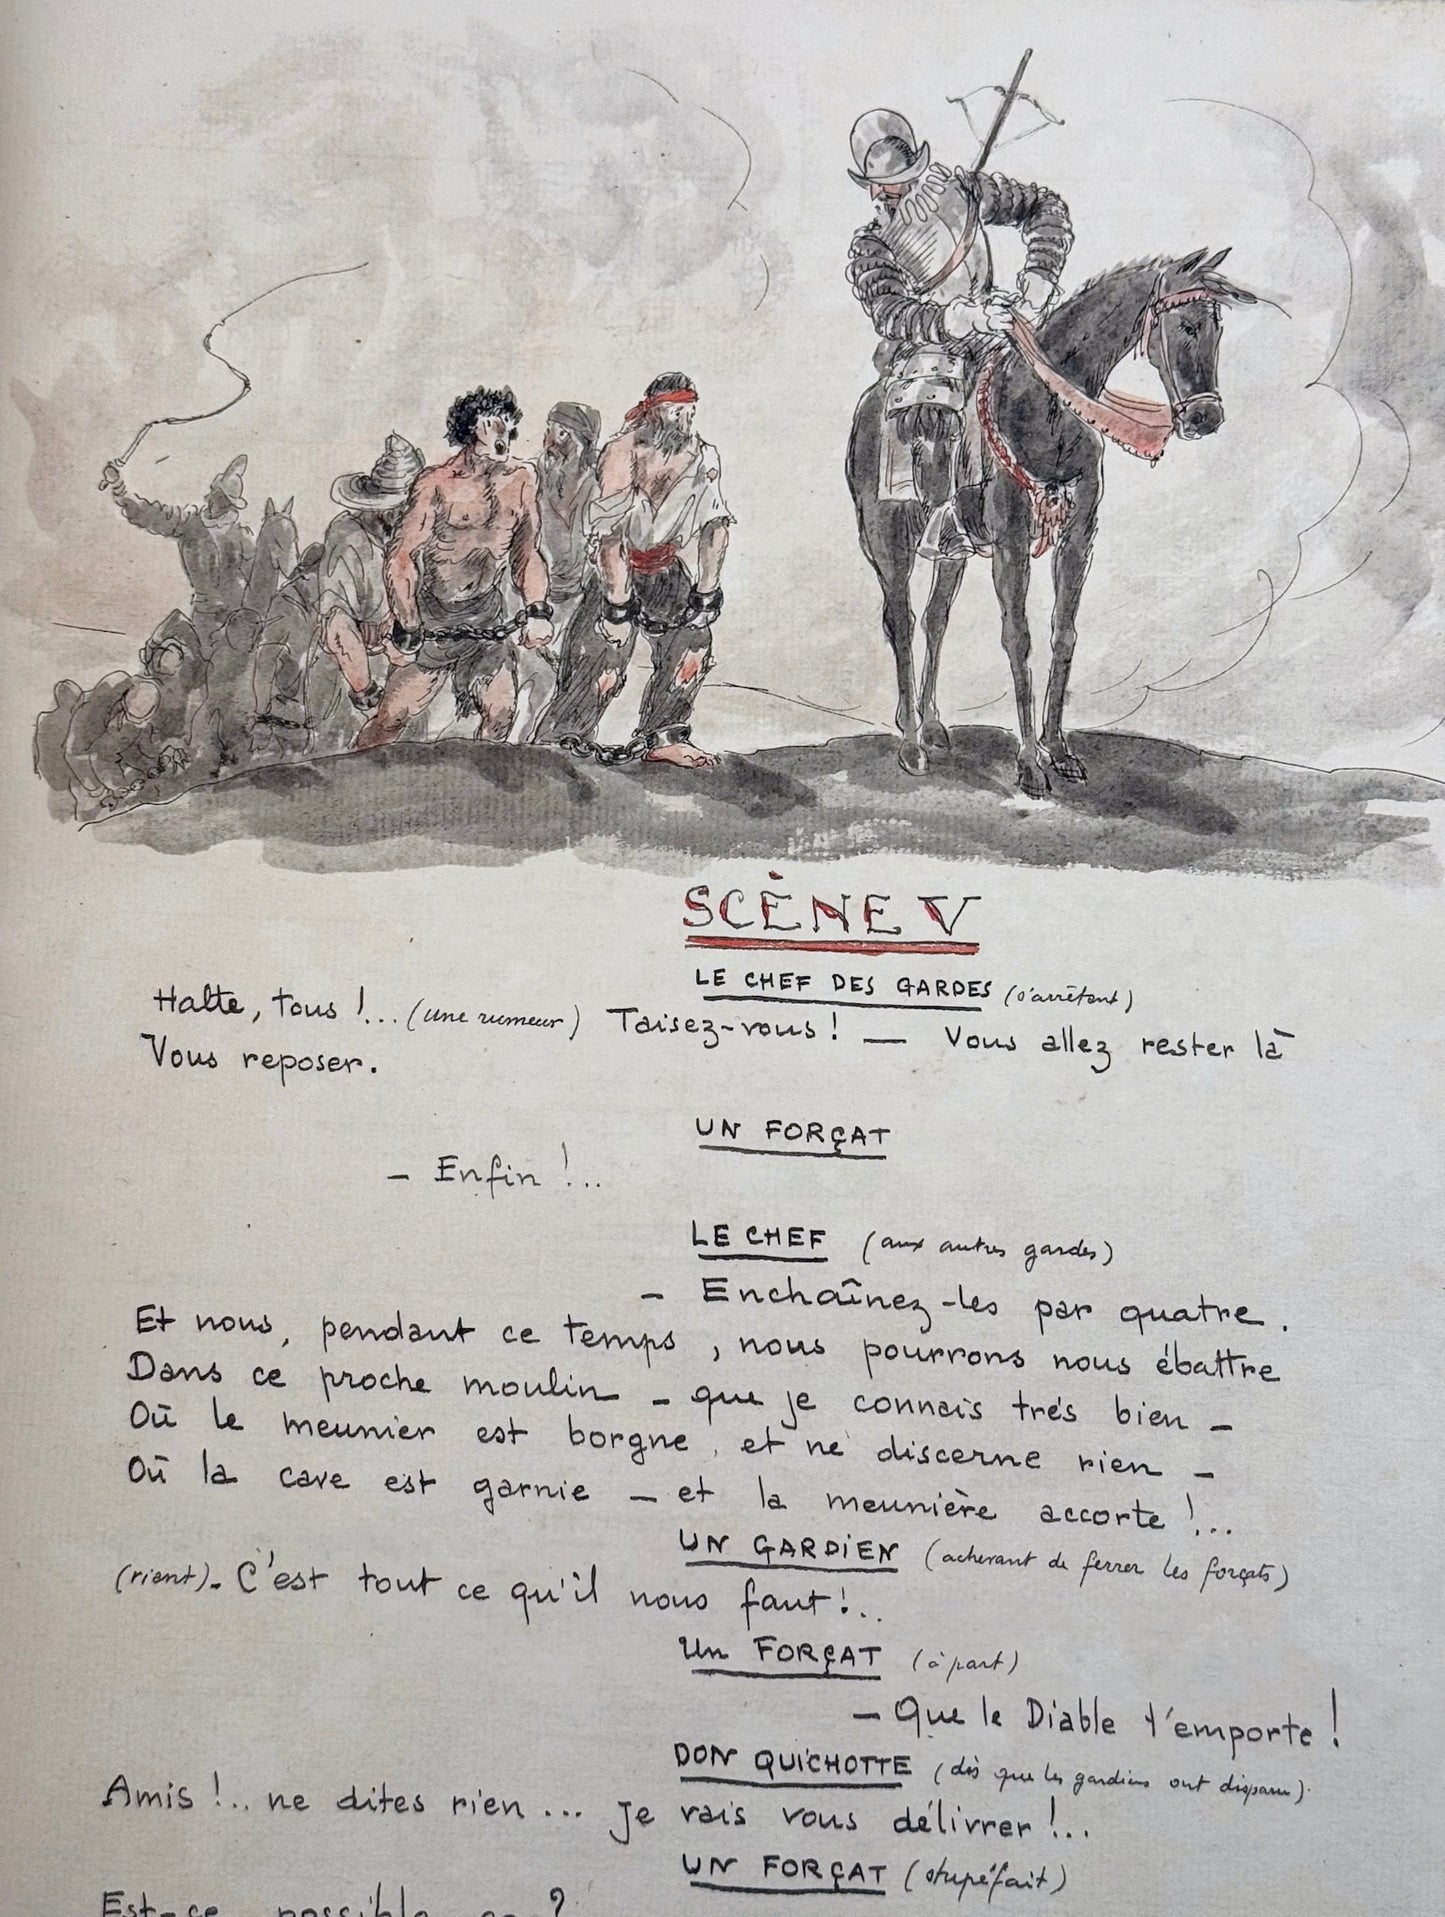 SCÈNE V
LE CHEF DES GARDES (s'arrêtant)
Halte, tous !... (une rumeur) Taisez-vous ! — Vous allez rester là
Vous reposer.
UN FORÇAT
— Enfin !...
LE CHEF (aux autres gardes)
— Enchaînez-les par quatre.
Et nous, pendant ce temps, nous pourrons nous ébattre
Dans ce proche moulin — que je connais très bien —
Où le meunier est borgne, et ne discerne rien —
Où la cave est garnie — et la meunière accorte !...
UN GARDIEN (achevant de ferrer les forçats)
(riant). C'est tout ce qu'il nous faut !..
Un FORÇAT (à part)
— Que le Diable t'emporte !
DON QUICHOTTE (dès que les gardiens ont disparu)
Amis !.. ne dites rien ... je vais vous délivrer !..
UN FORÇAT (stupéfait)
Est-ce possible ça ?